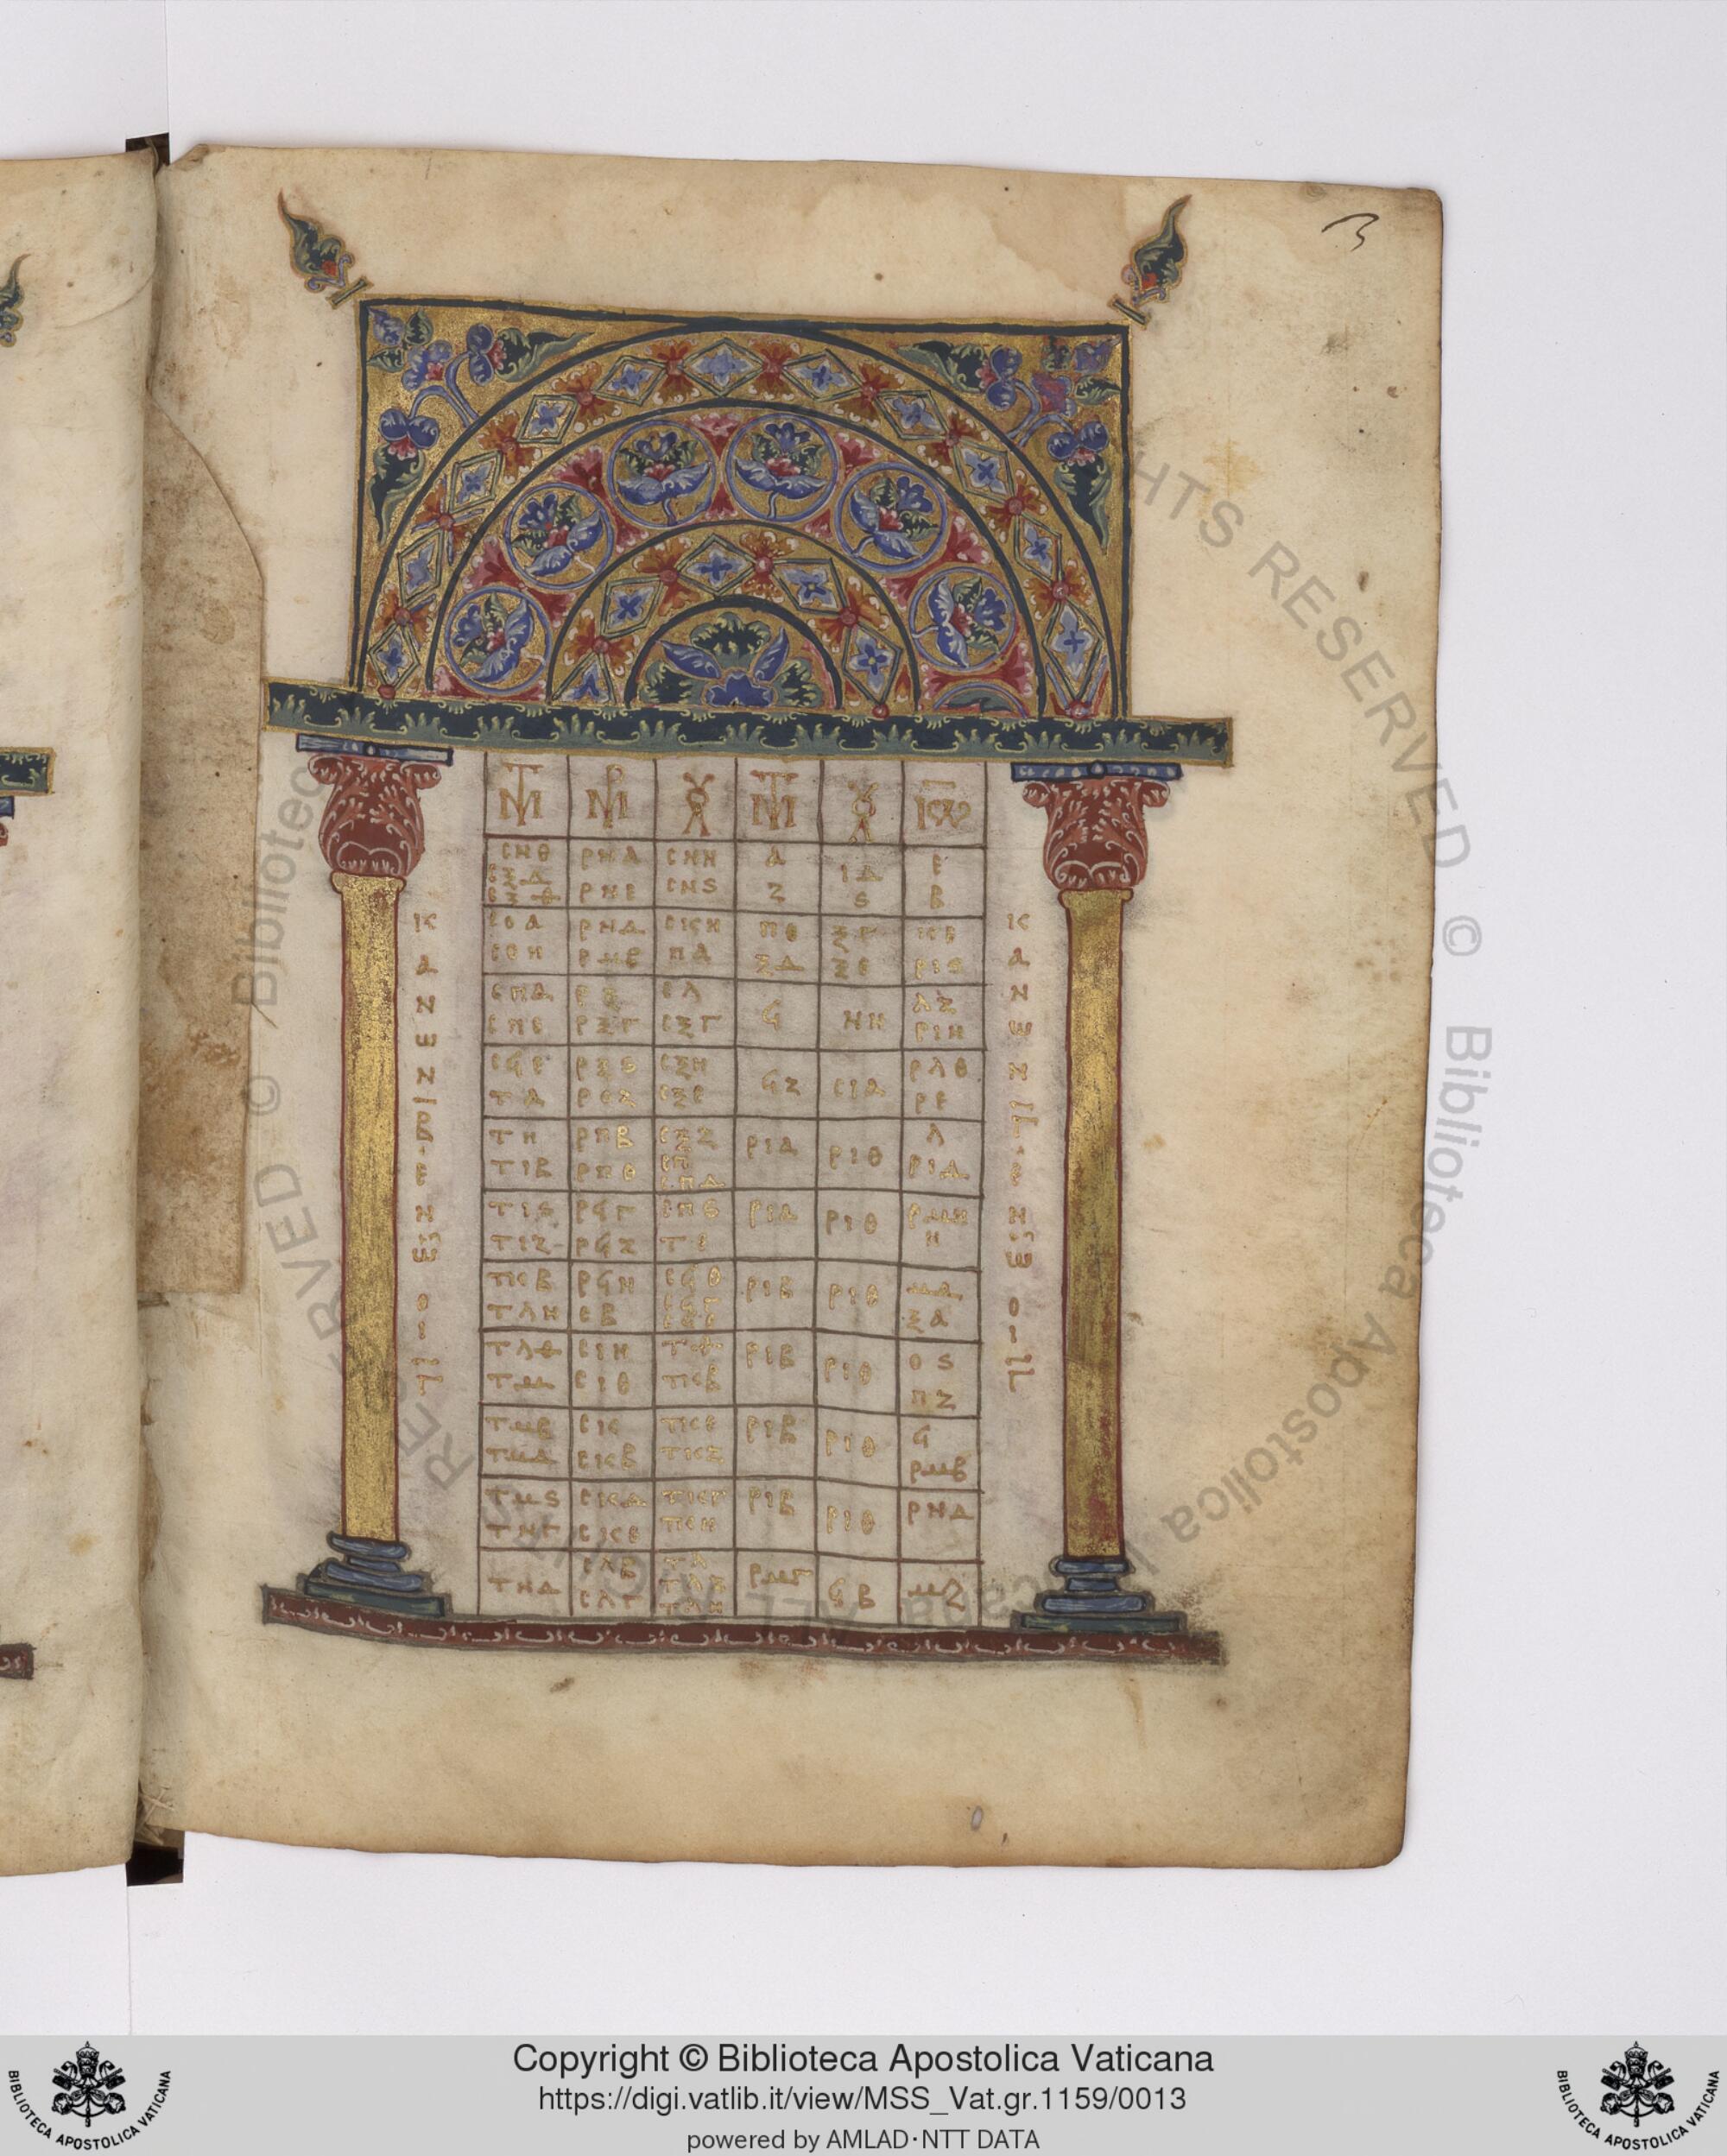 3
ΜΤ ΜΡ ΛΟΥΚ ΜΤ ΛΟΥΚ ΙΩ
ϹΝΘ ΡΝΔ ϹΝΗ Α ΙΔ Ε
ΡΝΕ ϹΝϚ Ζ Ϛ Β
ϹΟΑ ΡΝΔ ϹΚΗ ΠΘ ΞΓ ΚΕ
ϹΟΗ ΡΜΕ ΠΑ ΞΔ ΞΕ ΡΙϚ
ϹΠΔ ΡΞ ϹΛ Ϟ ΝΗ ΛΖ
ϹΠΕ ΡΞΓ ϹΞΓ ΡΙΗ
ϹϞΕ ΡΞϚ ϹΞΗ ϞΖ ϹΙΑ ΡΛΘ
ΤΑ ΡΟΖ ϹΞΕ ΡΕ
ΤΗ ΡΠΒ ϹΞΖ ΡΙΑ ΡΙΘ Λ
ΤΙΒ ΡΠΘ ϹΠ ΡΙΔ
ϹΠΔ
ΤΙϚ ΡϞΓ ϹΠϚ ΡΙΑ ΡΙΘ ΡΜΗ
ΤΙΖ ΡϞΖ Τ Η
ΤΚΒ ΡϞΗ ϹϞΘ ΡΙΒ ΡΙΘ ΜΑ
ΤΛΗ ϹΒ ϹϞΓ ΞΑ
ΤΛΘ ϹΙΗ ΤΘ ΡΙΒ ΡΙΘ ΟϚ
ΤΜ ϹΙΘ ΤΚΒ ΠΖ
ΤΜΒ ϹΚ ΤΚΕ ΡΙΒ ΡΙΘ Ϟ
ΤΜΔ ϹΚΒ ΤΚΖ ΡΜΒ
ΤΜϚ ϹΚΔ ΤΚΓ ΡΙΒ ΡΙΘ ΡΝΔ
ΤΝΓ ϹΚΕ ΤΚΗ
ΤΝΔ ϹΛΒ ΤΛ ΡΜΓ ϞΒ ΜΖ
ϹΛΓ ΤΛΒ
ΤΛΗ
ΚΑΝΩΝ Β ΕΝ Ω ΟΙ Γ
ΚΑΝΩΝ Γ ΕΝ Ω ΟΙ Γ
ALL RIGHTS RESERVED © Biblioteca Apostolica Vaticana
Copyright © Biblioteca Apostolica Vaticana
https://digi.vatlib.it/view/MSS_Vat.gr.1159/0013
powered by AMLAD·NTT DATA
BIBLIOTECA APOSTOLICA VATICANA
BIBLIOTECA APOSTOLICA VATICANA